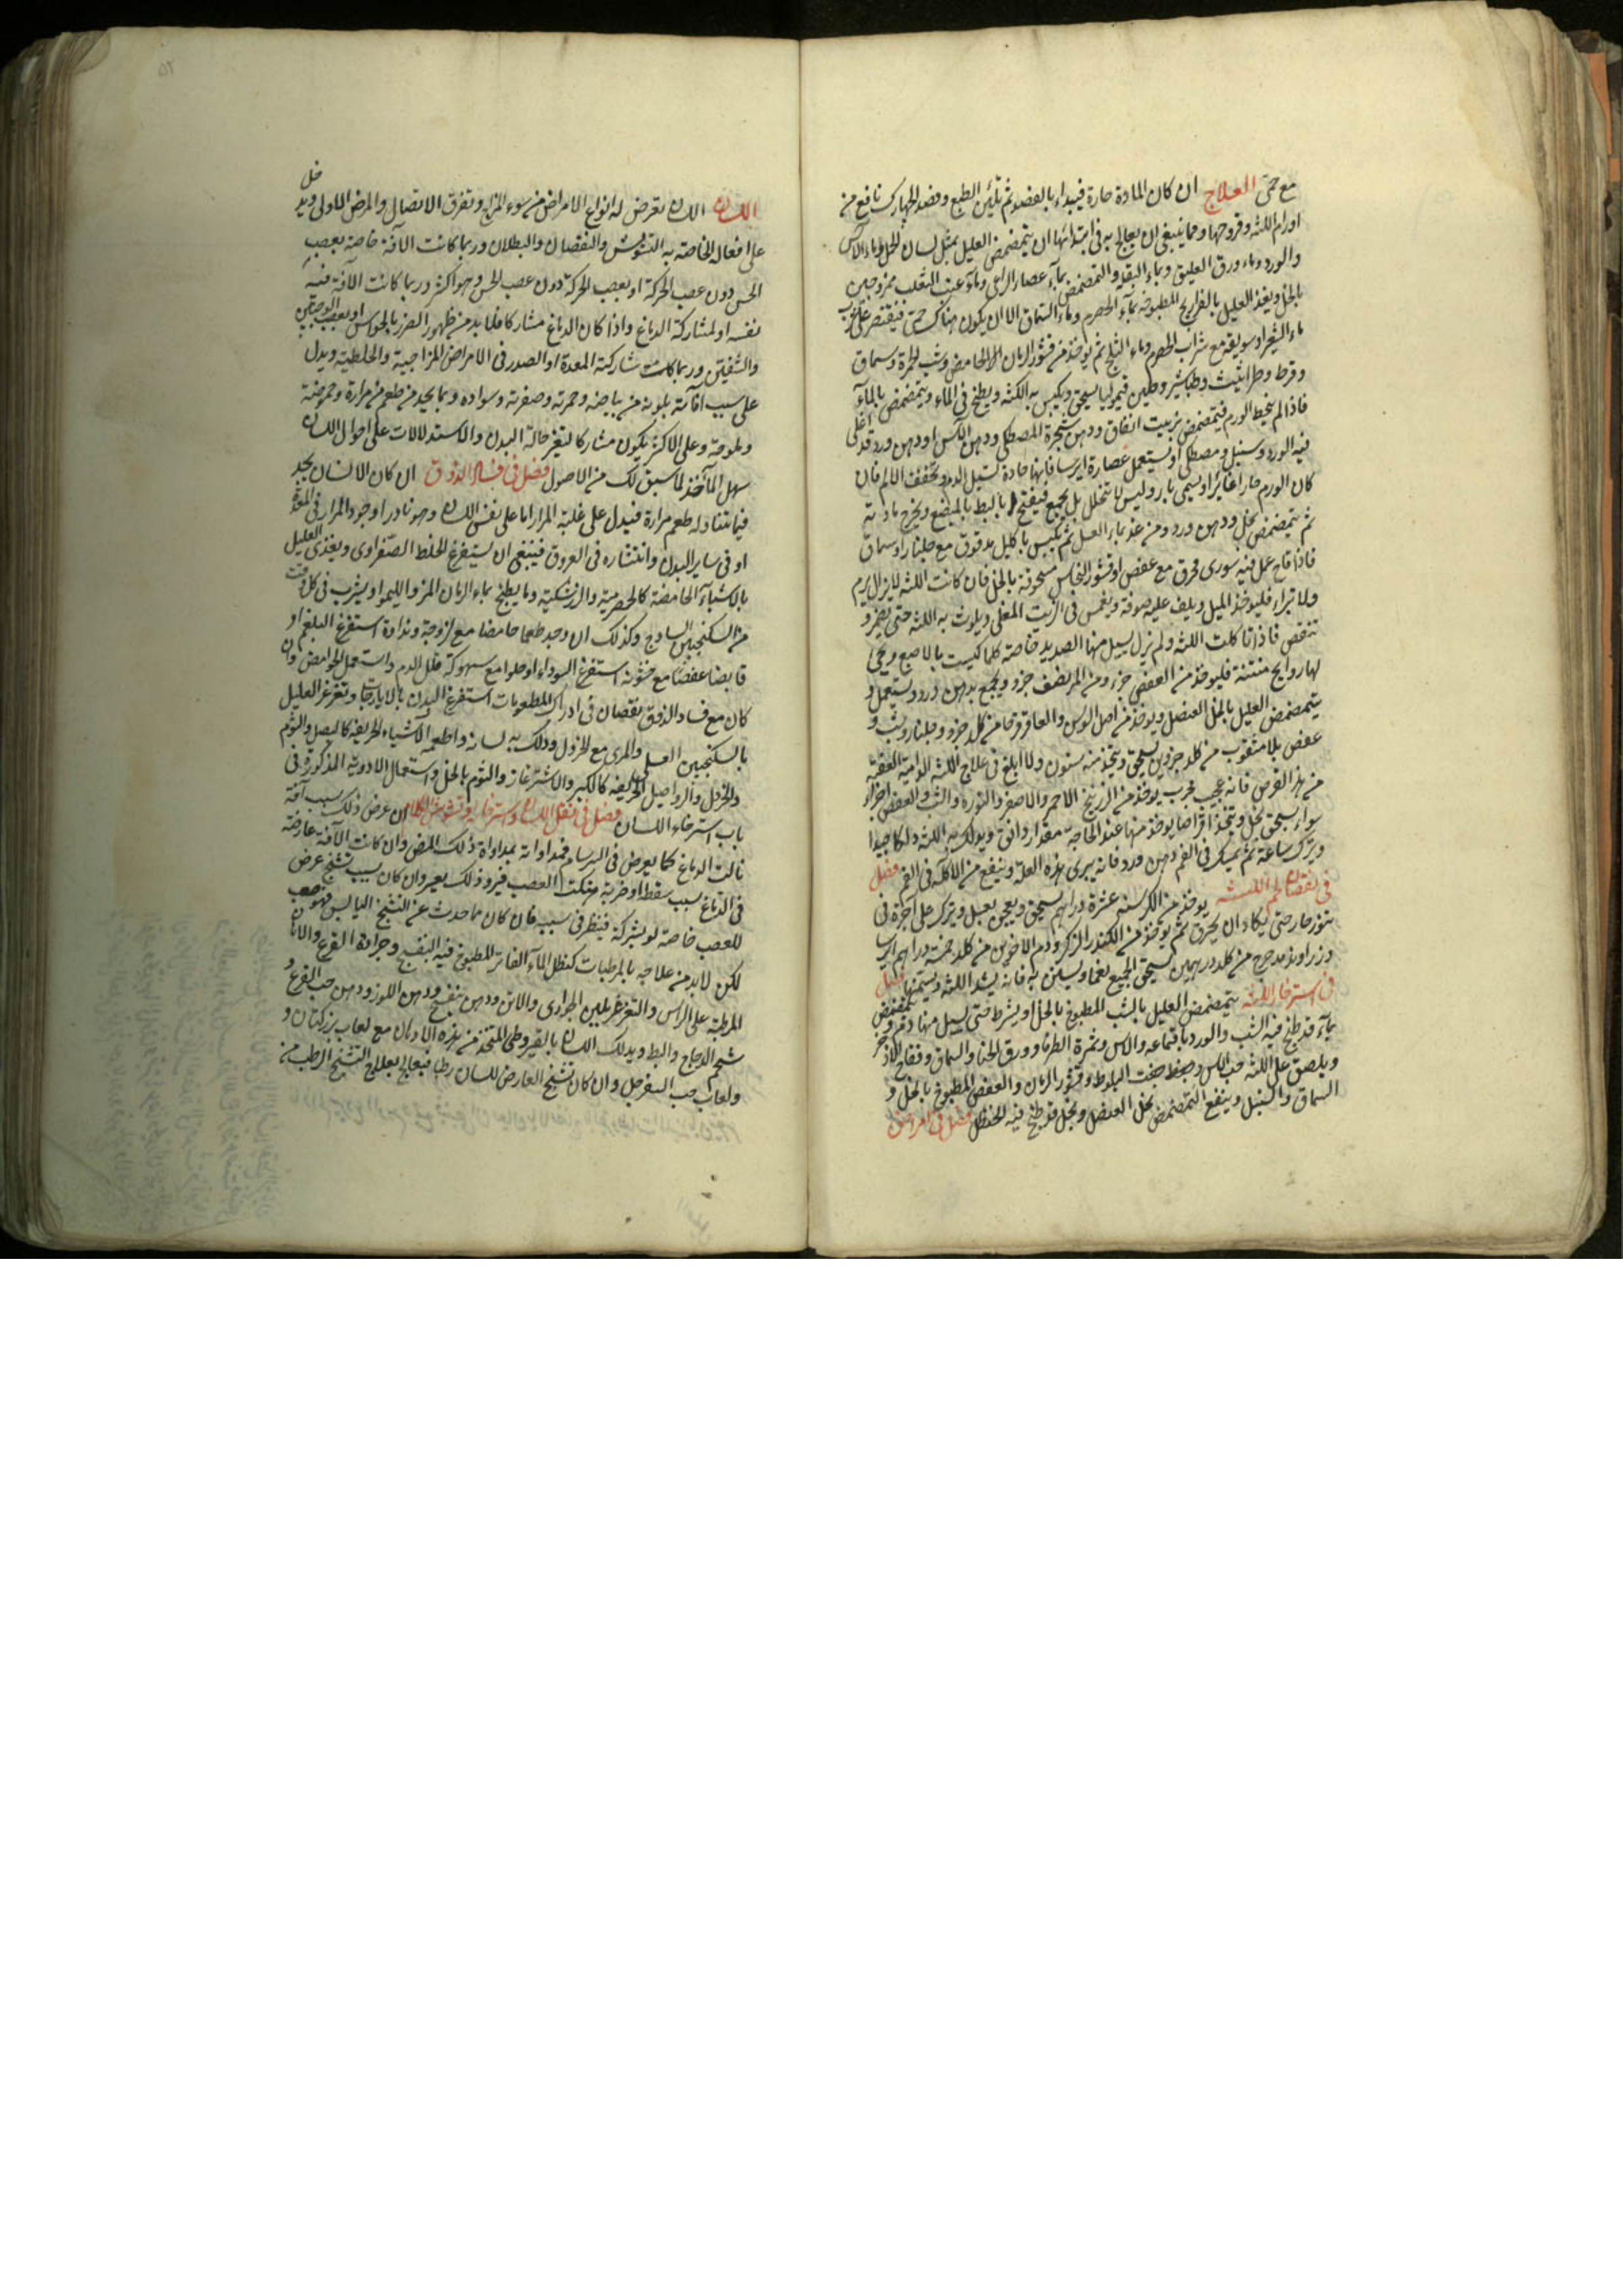 مع حمى العلاج ان كان المادة حارة فيبداء بالفصد ثم تليين الطبع وفصد الجهارك نافع من
اورام اللثه وقروحها ومما ينبغى ان يعالج به فى ابتدائها ان يتمضمض العليل بمثل لسان الحمل وماء الآس
والورد وماء ورق العليق وبماء البقله والتمضمض بماء عصار الراعى وماء عنب الثعلب ممزوجين
بالخل ويغذ العليل بالفراريج المطبوخة بماء الحصرم وماء السماق الا ان يكون هناك حمى فيقتصر على
ماء الشعير او سويقه مع شراب الحصرم وماء الثلج ثم يوخذ من قشور الرمان الحامض وشب وسماق
وقرط وطراثيث وطباشير وطين قيموليا يسحق ويكبس به اللثه ويطبخ فى الماء ويتمضمض بالماء
فاذا لم ينحط الورم فيتمضمض بزيت انفاق ودهن شجرة المصطكى ودهن الآس او دهن ورد قد اغلى
فيه الورد وسنبل ومصطكى او يستعمل عصارة ايرسا فانها حادة تسيل الدم وتخفف الالم فان
كان الورم حارا غائرا ويسمى بارولیس لا تتحلل بل يجمع فيفتح بالبط بالمبضع ويخرج مادته
ثم يتمضمض بخل ودهن ورد ومن غد بماء العسل ثم يكبس باكليل مدقوق مع جلنار او سماق
فاذا قاح عمل فيه سورى محرق مع عفص او قشور النحاس مسحوقة بالخل فان كانت اللثه لا يزال يرم
ولا تبراء فليوخذ الميل ويلف عليه صوفة ويغمس فى الزيت المغلى ويلوث به اللثه حتى يضمر و
تنقص فاذا تاكلت اللثه ولم يزل يسيل منها الصديد خاصة كلما كبست بالاصبع ويجى
لها روايح منتنة فليوخذ من العفص جزء ومن المر نصف جزء ويجمع بدهن ورد ويستعمل و
يتمضمض العليل بالخل العنصل ويوخذ من اصل السوسن والعاقرقرحا من كل جزء وجلنار وشب و
عفص بلا مثقوب من كل جزوين يسحق ويتخذ منه سنون ولا ابلغ فى علاج اللثه الدامية العفنة
من هذا القرص فانه عجيب مجرب يوخذ من الزرنيخ الاحمر والاصفر والنوره والشب والعفص اجزاء
سواء يسحق بخل ويتخذ اقراصا يوخذ منها عند الحاجة مقدار دانق ويدلك به اللثه دلكا جيدا
ويترك ساعة ثم يمسك فى الفم دهن ورد فانه يبرى هذه العلة وينفع من الآكلة فى الفم فصل
فى نقصان لحم اللثه يوخذ من الكرسنه عشرة دراهم يسحق ويعجن بعسل ويترك على اجرة فى
تنور حار حتى يكاد ان يحترق ثم يوخذ من الكندر الذكر ودم الاخوين من كل خمسة دراهم ايرسا
وزراوند مدحرج من كل درهمين يسحق الجميع نغما ويستن به فانه يشد اللثه وينبتها فصل
فى استرخاء اللثه يتمضمض العليل بالشب المطبوخ بالخل او يشرط حتى يسيل منها دم ويتمضمض
بماء قد طبخ فيه الشب والورد باقماعه والآس وثمرة الطرفا وورق الحنا والسماق وفقاح الاذخر
ويلصق على اللثه حب الآس وجفت البلوط وقشور الرمان والعفص المطبوخ بالخل و
السماق والسنبل وينفع التمضمض بخل العنصل وبخل قد طبخ فيه الحنظل فصل فى امراض
اللسان اللسان تعرض له انواع الامراض من سوء المزاج وتفرق الاتصال والمرض الاولى ويدخل
على افعاله الخاصة به التشويش والنقصان والبطلان وربما كانت الآفة خاصة بعصب
الحس دون عصب الحركة او بعصب الحركة دون عصب الحس وهو اكثر وربما كانت الآفة فيه
نفسه او لمشاركة الدماغ واذا كان الدماغ مشاركا فلا بد من ظهور الضرر بالحواس او بعصب الوجنتين
والشفتين وربما كانت شاركته المعدة او الصدر فى الامراض المزاجية والخلطية ويدل
على سبب آفاته بلونه من بياضه وحمرته وصفرته وسواده وبما يجد من طعم من مرارة وحموضة
وملوحة وعلى الاكثر يكون مشاركا لتغير حالة البدن والاستدلالات على احوال اللسان
سهل المآخذ لما سبق لك من الاصول فصل فى فساد الذوق ان كان الانسان يجد
فيما تناوله طعم مرارة فيدل على غلبة المرار اما على نفس اللسان وهو نادر او وجود المرار فى المعدة
او فى ساير البدن وانتشاره فى العروق فينبغى ان يستفرغ الخلط الصفراوى ويغذى العليل
بالاشياء الحامضة كالحصرمية والزرشكية وما يطبخ بماء الرمان المز والليمو او يشرب فى كل وقت
من السكنجبين الساذج وكذلك ان وجد طعما حامضا مع لزوجة ونداوة استفرغ البلغم او
قابضا عفصا مع خشونه استفرغ السوداء او حلوا مع سهوكة قلل الدم واستعمل الحوامض وان
كان مع فساد الذوق نقصان فى ادراك المطعومات استفرغ البدن بالايارجات وتغرغر العليل
بالسكنجبين العسلى والمرى مع الخردل ودلك به لسانه واطعمه الاشياء الحريفه كالبصل والثوم
والخردل والرواصيل الحريفه كالكبر والاشترغاز والثوم بالخل واستعمال الادوية المذكورة فى
باب استرخاء اللسان فصل فى ثقل اللسان واسترخائه وتشوش الكلام ان عرض ذلك بسبب آفة
نالت الدماغ كما يعرض فى البرسام فمداواته بمداواة ذلك المرض وان كانت الآفة عارضة
فى الدماغ بسبب سقطه او ضربة هتكت العصب فبرو ذلك يعسر وان كان بسبب تشنج عرض
للعصب خاصة لو بشركة فينظر فى سببه فان كان مما حدث عن التشنج اليابس فهو صعب
لكن لابد من علاجه بالمرطبات كنطل الماء الفاتر المطبوخ فيه البنفسج وجرادة القرع والالبان
المرطبة على الراس والتغرغر بلبن الجوارى والاتن ودهن بنفسج ودهن اللوز ودهن حب القرع و
شحم الدجاج والبط ويدلك اللسان بالقيروطى المتخذ من هذه الادهان مع لعاب بزركتان و
ولعاب حب السفرجل وان كان تشنج العارض للسان رطبا فيعالج بعلاج التشنج الرطب من